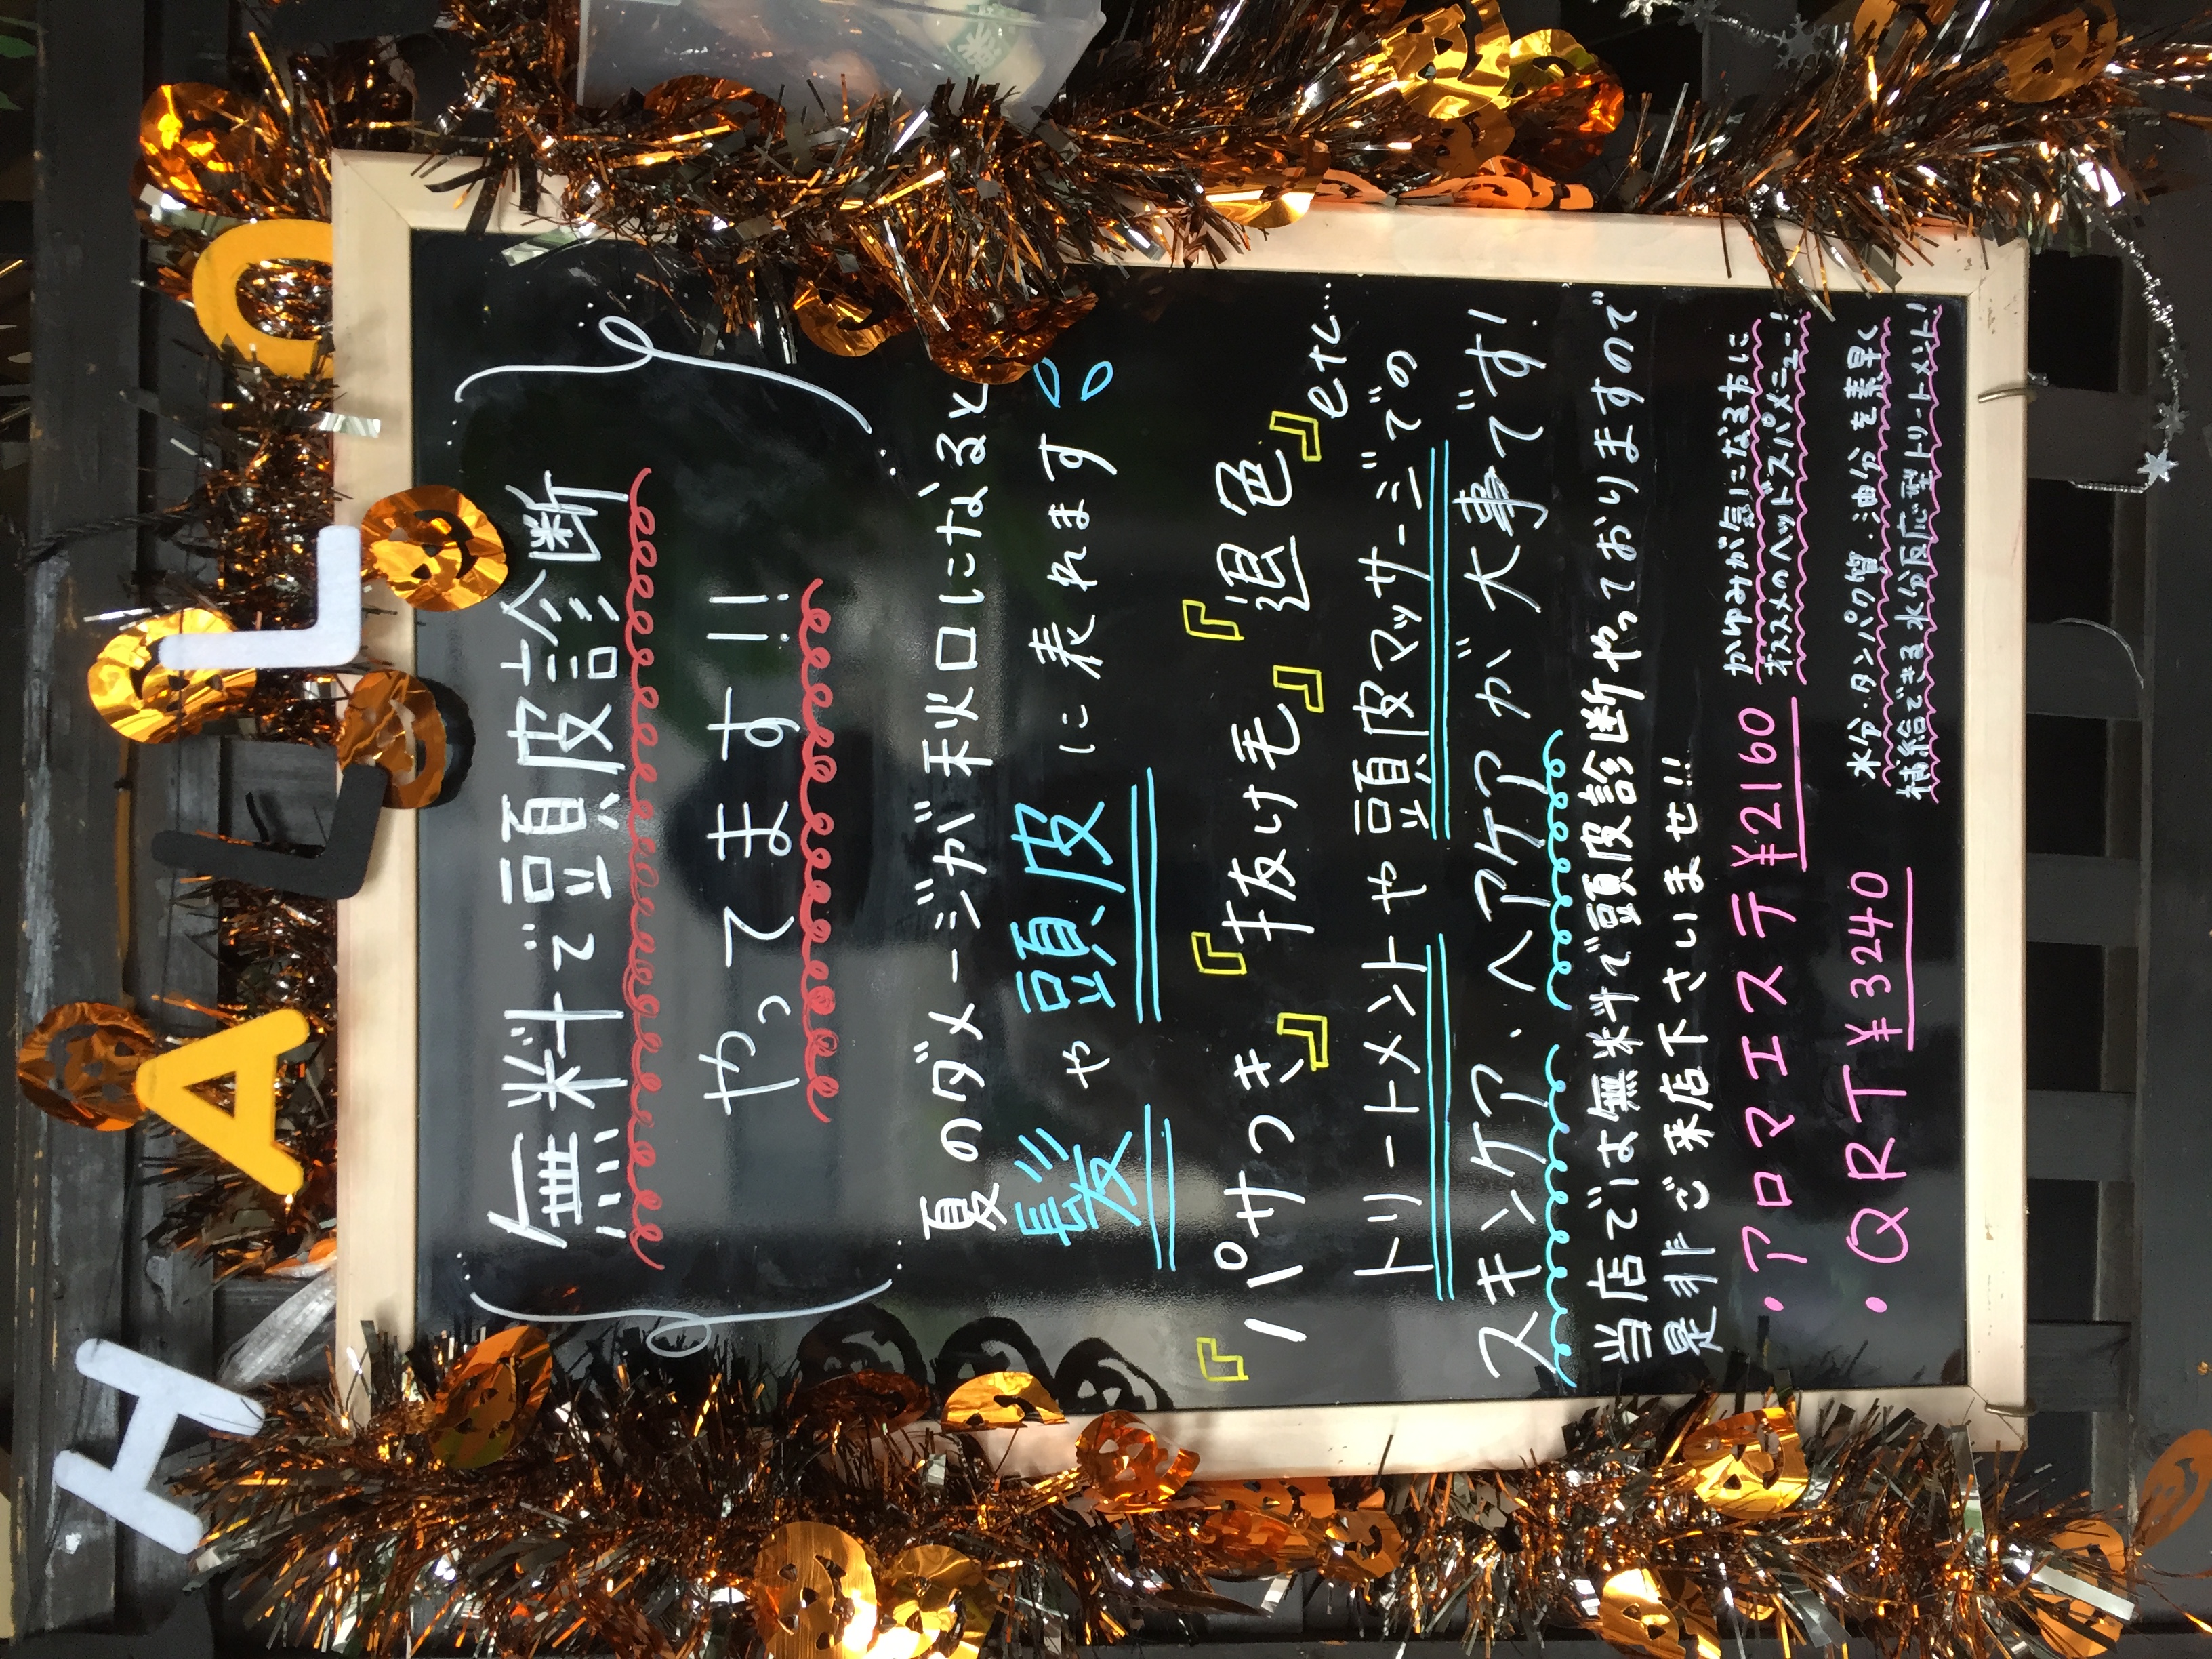 HALLO
無料で頭皮診断
やってます!!
夏のダメージが秋口になると
髪や頭皮に表れます
『パサつき』『抜け毛』『退色』etc...
トリートメントや頭皮マッサージでの
スキンケア、ヘアケアが大事です!
当店では無料で頭皮診断やっておりますので
是非ご来店下さいませ!!
・アロマエステ¥2160
かゆみが気になる方に
オススメのヘッドスパメニュー!
・QRT¥3240
水分・タンパク質・油分を素早く
補給できる水分反応型トリートメント!